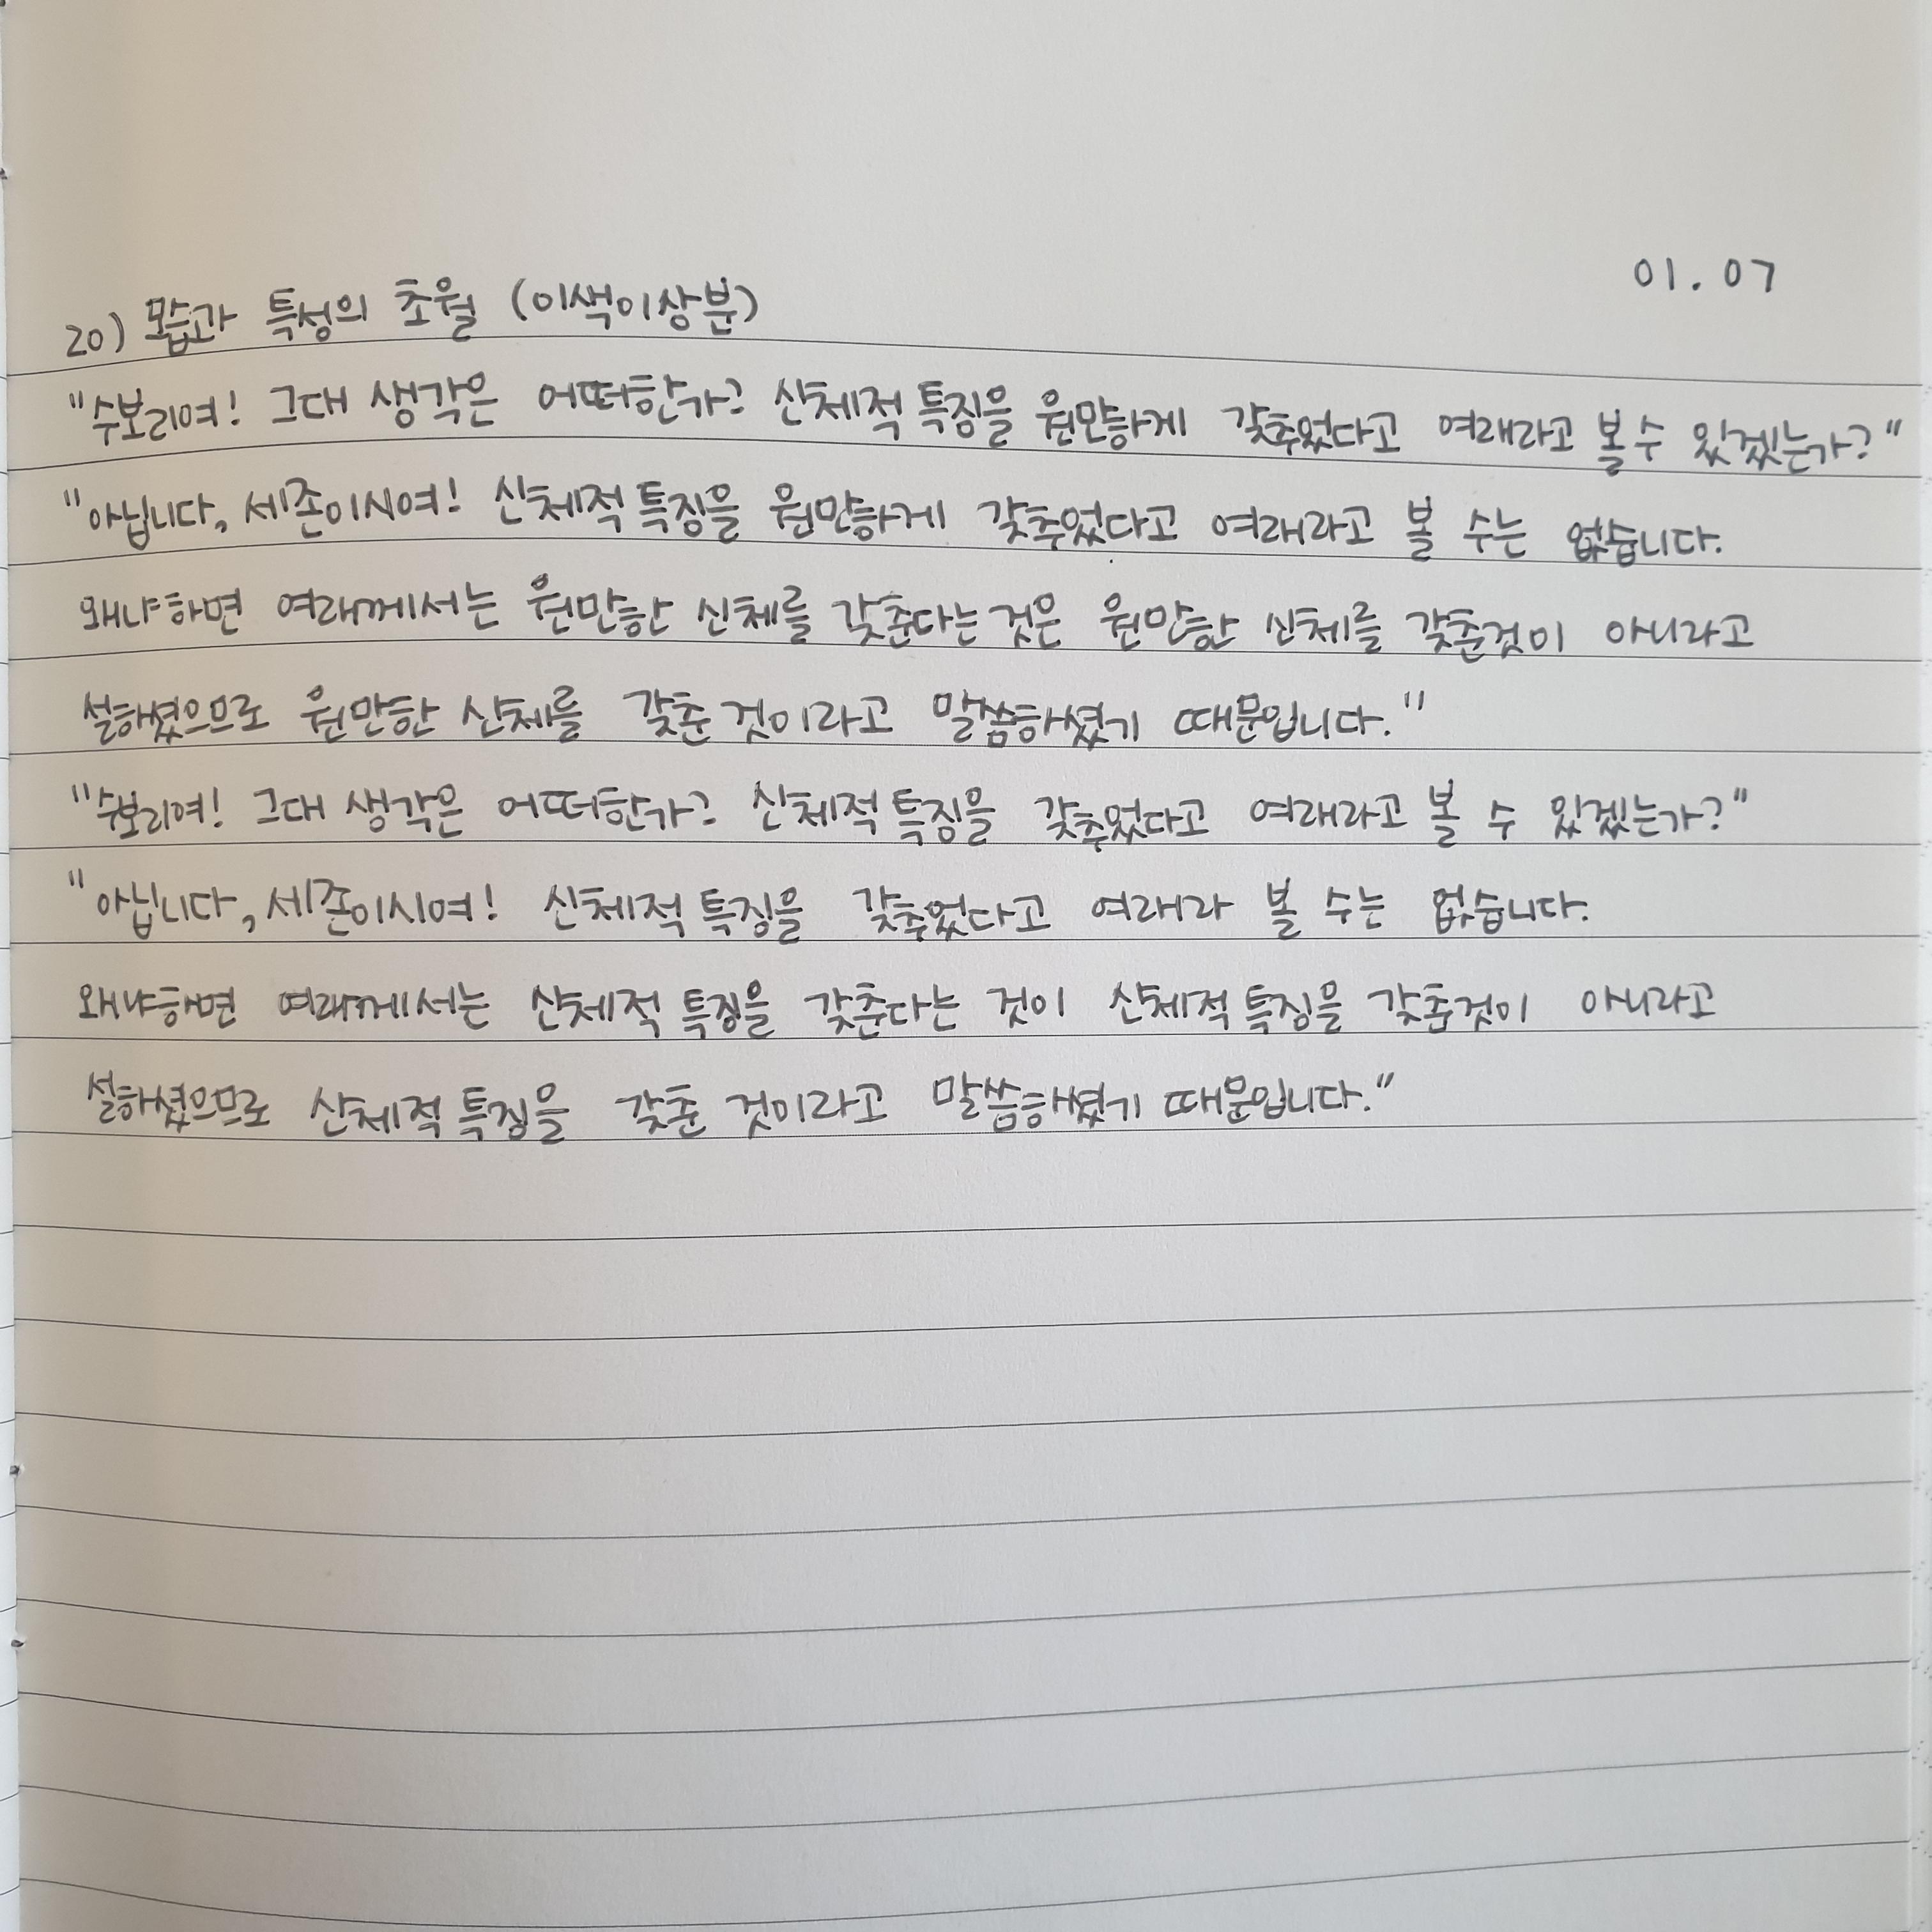 01.07
20) 모습과 특성의 초월 (이색이상분)
"수보리여! 그대 생각은 어떠한가? 신체적 특징을 원만하게 갖추었다고 여래라고 볼 수 있겠는가?"
"아닙니다, 세존이시여! 신체적 특징을 원만하게 갖추었다고 여래라고 볼 수는 없습니다.
왜냐하면 여래께서는 원만한 신체를 갖춘다는 것은 원만한 신체를 갖춘것이 아니라고
설하셨으므로 원만한 신체를 갖춘 것이라고 말씀하셨기 때문입니다."
"수보리여! 그대 생각은 어떠한가? 신체적 특징을 갖추었다고 여래라고 볼 수 있겠는가?"
"아닙니다, 세존이시여! 신체적 특징을 갖추었다고 여래라 볼 수는 없습니다.
왜냐하면 여래께서는 신체적 특징을 갖춘다는 것이 신체적 특징을 갖춘것이 아니라고
설하셨으므로 신체적 특징을 갖춘 것이라고 말씀하셨기 때문입니다."